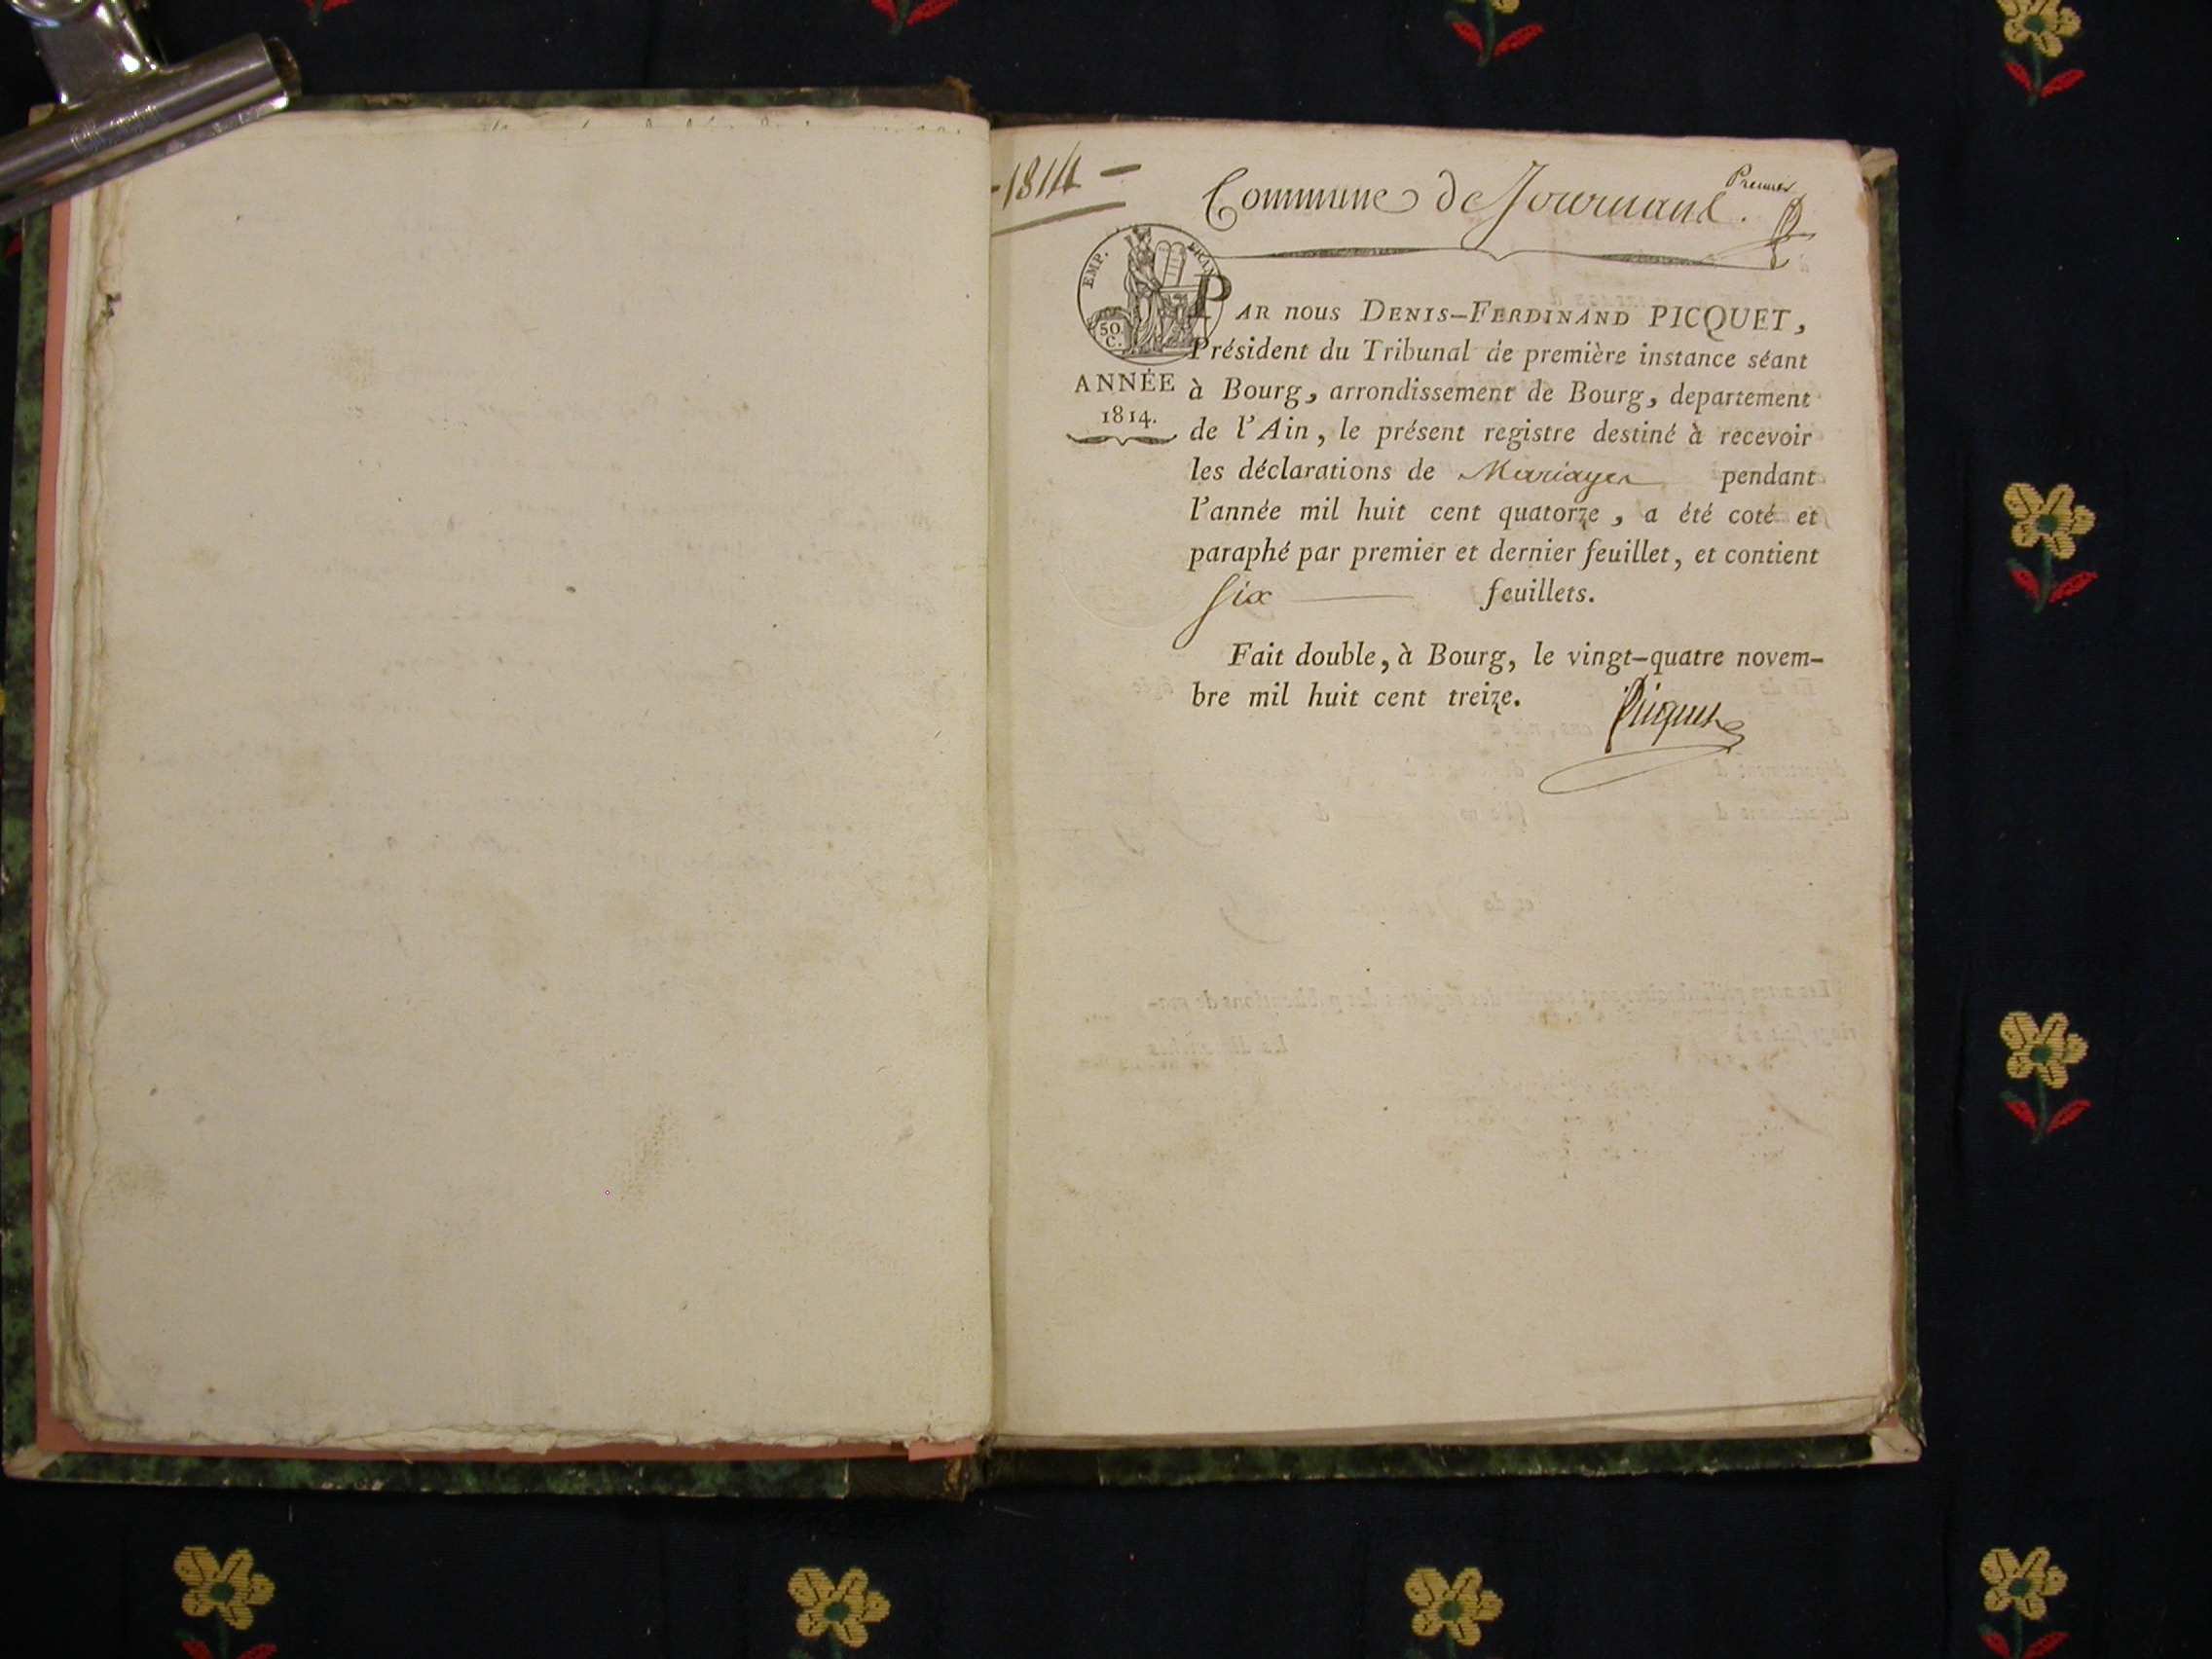 -1814-
Commune de Journans.
Premier
EMP. FRAN
50.
C.
ANNÉE
1814.
PAR nous DENIS-FERDINAND PICQUET,
Président du Tribunal de première instance séant
à Bourg, arrondissement de Bourg, departement
de l'Ain, le présent registre destiné à recevoir
les déclarations de Mariages pendant
l'année mil huit cent quatorze, a été coté et
paraphé par premier et dernier feuillet, et contient
Six feuillets.
Fait double, à Bourg, le vingt-quatre novem-
bre mil huit cent treize.
Picquet